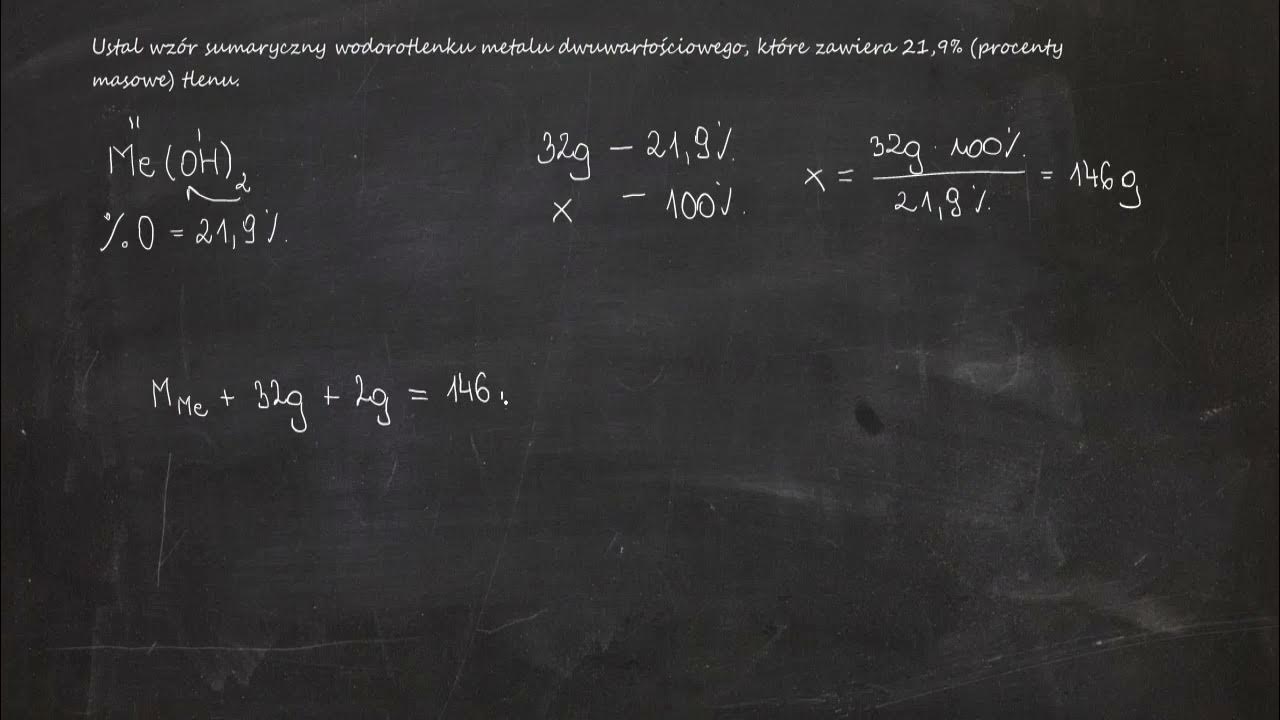 Ustal wzór sumaryczny wodorotlenku metalu dwuwartościowego, które zawiera 21,9% (procenty
masowe) tlenu.
II I
Me(OH)₂
%O = 21,9%.
32g – 21,9%.
x – 100%.
x = 32g · 100% / 21,9% = 146g
M_Me + 32g + 2g = 146